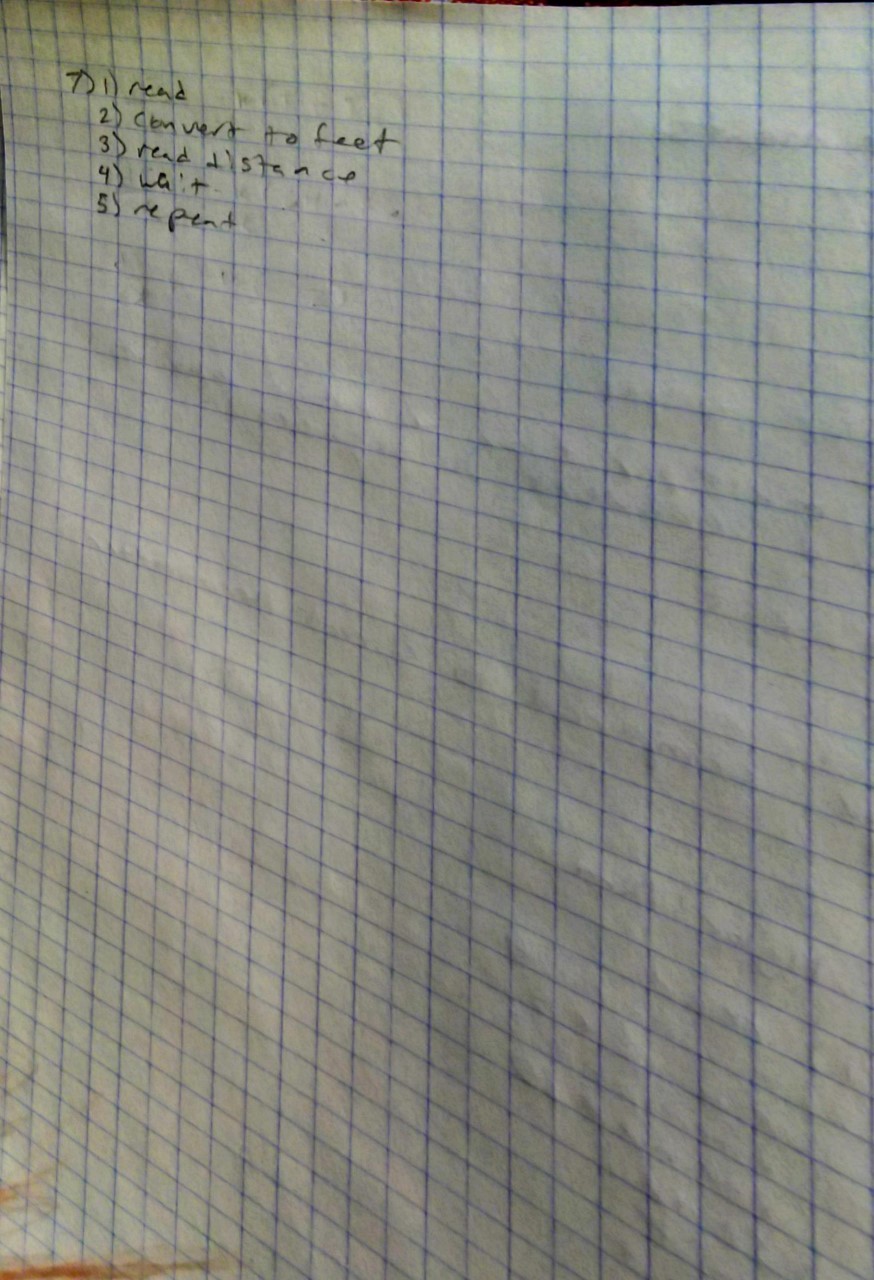 7) 1) read
2) convert to feet
3) read distance
4) wait
5) repeat